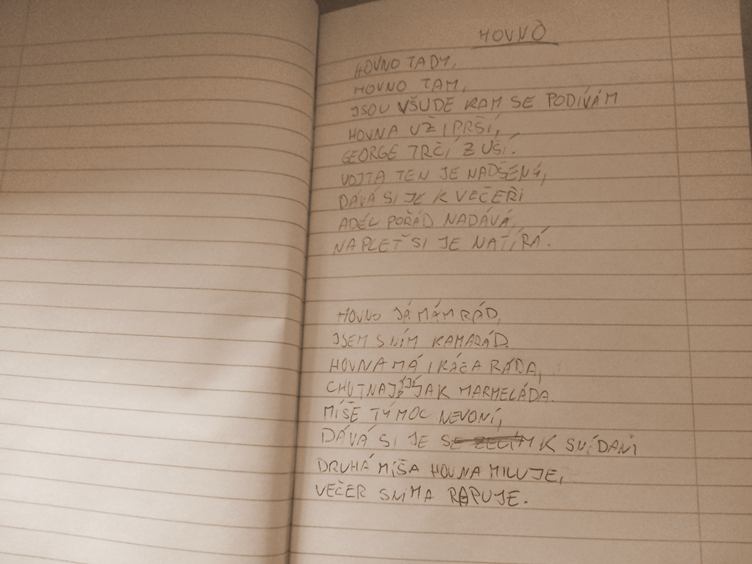 HOVNO
HOVNO TADY,
HOVNO TAM,
JSOU VŠUDE KAM SE PODÍVÁM
HOVNA UŽ I PRŠÍ,
GEORGE TRČÍ Z UŠÍ.
VOJTA TEN JE NADŠENÝ,
DÁVÁ SI JE K VEČEŘI
ADÉL POŘÁD NADÁVÁ,
NA PLEŤ SI JE NATÍRÁ.
HOVNO JÁ MÁM RÁD,
JSEM S NÍM KAMARÁD.
HOVNA MÁ I KÁČA RÁDA,
CHUTNAJÍ JÍ JAK MARMELÁDA.
MÍŠE TÝ MOC NEVONÍ,
DÁVÁ SI JE K SNÍDANI
DRUHÁ MÍŠA HOVNA MILUJE,
VEČER SNIMA RAPUJE.